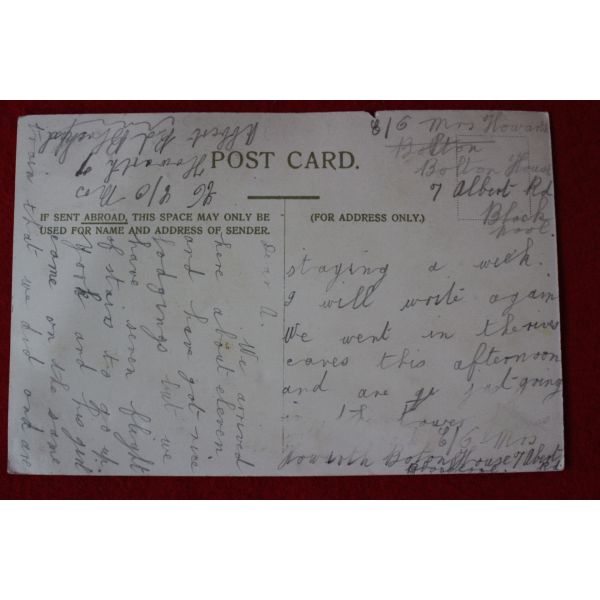 ℅ Mrs Howarth
Bolton
Bolton House
7 Albert Rd
Blackpool.
℅ Mrs
Howarth 7
Albert Rd Blackpool
POST CARD.
IF SENT ABROAD, THIS SPACE MAY ONLY BE
USED FOR NAME AND ADDRESS OF SENDER.
(FOR ADDRESS ONLY.)
Dear A. We arrived
here about eleven
and have got nice
lodgings but we
have seven flight
of stairs to go up.
York and his girl
came on the same
train that we did and are
staying a week.
I will write again
We went in the river
caves this afternoon
and are just going
in the
℅ Mrs
Howarth Bolton House 7 Albert
Blackpool. Rd